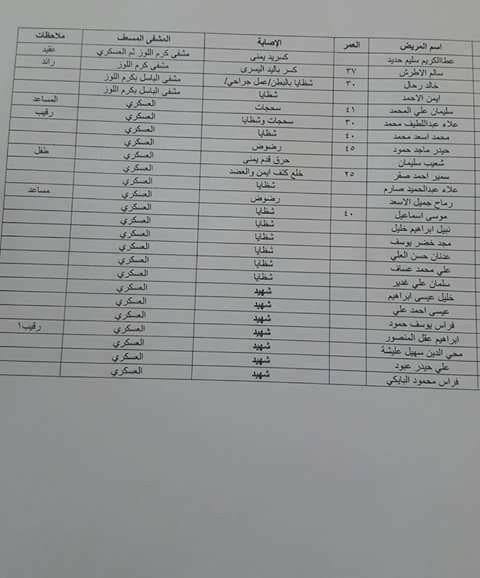 اسم المريض العمر الإصابة المشفى المسعف ملاحظات
عطاالكريم سليم حديد كسريد يمنى مشفى كرم اللوز ثم العسكري عقيد
سالم الاطرش ٣٧ كسر باليد اليسرى مشفى كرم اللوز رائد
خالد رحال ٣٠ شظايا بالبطن/عمل جراحي/ مشفى الباسل بكرم اللوز
ايمن الاحمد شظايا مشفى الباسل بكرم اللوز
سليمان علي المحمد ٤١ سحجات العسكري المساعد
علاء عبداللطيف محمد ٣٠ سحجات وشظايا العسكري رقيب
محمد اسعد محمد ٤٠ شظايا العسكري
حيدر ماجد حمود ٤٥ رضوض العسكري
شعيب سليمان حرق قدم يمنى العسكري طفل
سمير احمد صقر ٢٥ خلع كتف ايمن والعضد العسكري
علاء عبدالحميد صارم شظايا العسكري
رماح جميل الاسعد رضوض العسكري مساعد
موسى اسماعيل ٤٠ شظايا العسكري
نبيل ابراهيم خليل شظايا العسكري
مجد خضر يوسف شظايا العسكري
عدنان حسن العلي شظايا العسكري
علي محمد عساف شظايا العسكري
سلمان علي غدير شظايا العسكري
خليل عيسى ابراهيم شهيد العسكري
عيسى احمد علي شهيد العسكري
فراس يوسف حمود شهيد العسكري
ابراهيم عقل المنصور شهيد العسكري رقيب١
محي الدين سهيل عليشة شهيد العسكري
علي حيدر عبود شهيد العسكري
فراس محمود البابكي شهيد العسكري